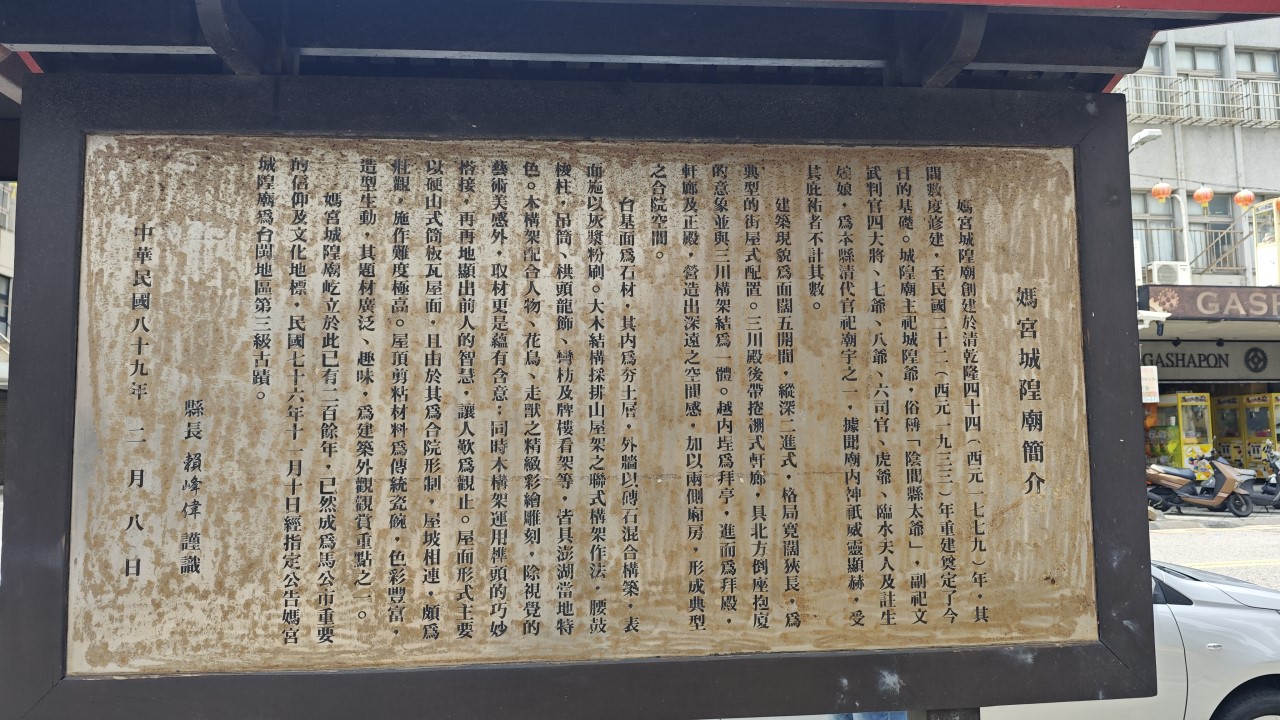 媽宮城隍廟簡介
媽宮城隍廟創建於清乾隆四十四(西元一七七九)年,其
間數度修建,至民國二十二(西元一九三三)年重建奠定了今
日的基礎。城隍廟主祀城隍爺,俗稱「陰間縣太爺」,副祀文
武判官四大將、七爺、八爺、六司官、虎爺、臨水夫人及註生
娘娘,為本縣清代官祀廟宇之一,據聞廟內神祇威靈顯赫,受
其庇祐者不計其數。
建築現貌為面闊五開間,縱深二進式,格局寬闊狹長,為
典型的街屋式配置。三川殿後帶捲棚式軒廊,具北方倒座抱廈
的意象並與三川構架結為一體。越內埕為拜亭,進而為拜殿,
軒廊及正殿,營造出深遠之空間感,加以兩側廂房,形成典型
之合院空間。
台基面為石材,其內為夯土層,外牆以磚石混合構築,表
面施以灰漿粉刷。大木結構採排山屋架之聯式構架作法,腰鼓
梭柱,吊筒、栱頭龍飾、彎枋及牌樓看架等,皆具澎湖當地特
色。木構架配合人物、花鳥、走獸之精緻彩繪雕刻,除視覺的
藝術美感外,取材更是蘊有含意;同時木構架運用榫頭的巧妙
搭接,再再地顯出前人的智慧,讓人歎為觀止。屋面形式主要
以硬山式筒板瓦屋面,且由於其為合院形制,屋坡相連,頗為
壯觀,施作難度極高。屋頂剪粘材料為傳統瓷碗,色彩豐富,
造型生動,其題材廣泛、趣味,為建築外觀觀賞重點之一。
媽宮城隍廟屹立於此已有二百餘年,已然成為馬公市重要
的信仰及文化地標,民國七十六年十一月十日經指定公告媽宮
城隍廟為台閩地區第三級古蹟。
縣長 賴峰偉 謹識
中華民國八十九年 二月 八日
GASH
GASHAPON